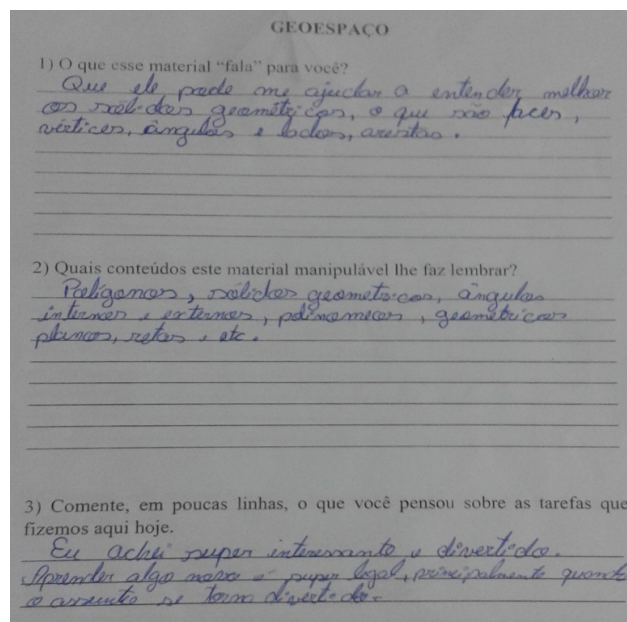 GEOESPAÇO
1) O que esse material “fala” para você?
Que ele pode me ajudar a entender melhor
os sólidos geométricos, o que são faces,
vértices, ângulos e lados, arestas.
2) Quais conteúdos este material manipulável lhe faz lembrar?
Polígonos, sólidos geometricos, ângulos
internos e externos, polinomeos, geometricos
planos, retas, etc.
3) Comente, em poucas linhas, o que você pensou sobre as tarefas que
fizemos aqui hoje.
Eu achei super interessante e divertido.
Aprender algo novo é super legal, principalmente quando
o assunto se torn divertido.